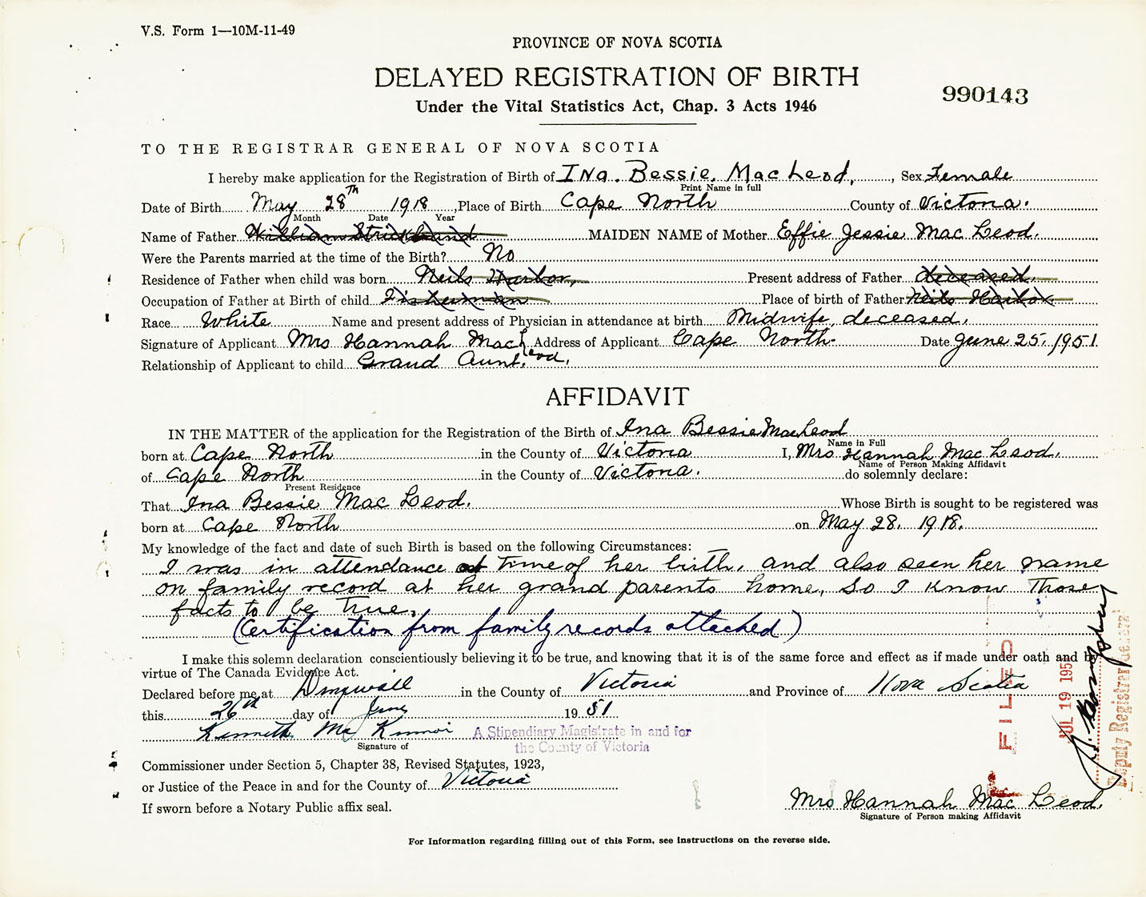 V.S. Form 1—10M-11-49
PROVINCE OF NOVA SCOTIA
DELAYED REGISTRATION OF BIRTH
Under the Vital Statistics Act, Chap. 3 Acts 1946
990143
TO THE REGISTRAR GENERAL OF NOVA SCOTIA
I hereby make application for the Registration of Birth of Ina. Bessie. MacLeod, , Sex Female
Print Name in full
Date of Birth May 28th 1918 Place of Birth Cape North County of Victoria.
Month Date Year
Name of Father William Strickland MAIDEN NAME of Mother Effie Jessie Mac Leod.
Were the Parents married at the time of the Birth? No
Residence of Father when child was born Neils Harbor, Present address of Father deceased.
Occupation of Father at Birth of child Fisherman Place of birth of Father Neils Harbor
Race White Name and present address of Physician in attendance at birth Midwife deceased.
Signature of Applicant Mrs Hannah MacLeod. Address of Applicant Cape North. Date June 25. 1951
Relationship of Applicant to child Grand Aunt.
AFFIDAVIT
IN THE MATTER of the application for the Registration of the Birth of Ina Bessie MacLeod
Name in Full
born at Cape North in the County of Victoria I, Mrs Hannah Mac Leod.
Name of Person Making Affidavit
of Cape North in the County of Victoria. do solemnly declare:
Present Residence
That Ina Bessie Mac Leod. Whose Birth is sought to be registered was
born at Cape North on May 28. 1918.
My knowledge of the fact and date of such Birth is based on the following Circumstances:
I was in attendance at time of her birth, and also seen her name
on family record at her grand parents home, So I know Those
facts to be true.
(Certification from family records attached)
I make this solemn declaration conscientiously believing it to be true, and knowing that it is of the same force and effect as if made under oath and by
virtue of The Canada Evidence Act.
Declared before me at Dingwall in the County of Victoria and Province of Nova Scotia
this 26th day of June 1951
Kenneth Mc Kinnon A Stipendiary Magistrate in and for
the County of Victoria
Signature of
Commissioner under Section 5, Chapter 38, Revised Statutes, 1923,
or Justice of the Peace in and for the County of Victoria
If sworn before a Notary Public affix seal.
Mrs Hannah Mac Leod.
Signature of Person making Affidavit
For Information regarding filling out of this Form, see instructions on the reverse side.
FILED
JUL 19 195
Deputy Registrar General